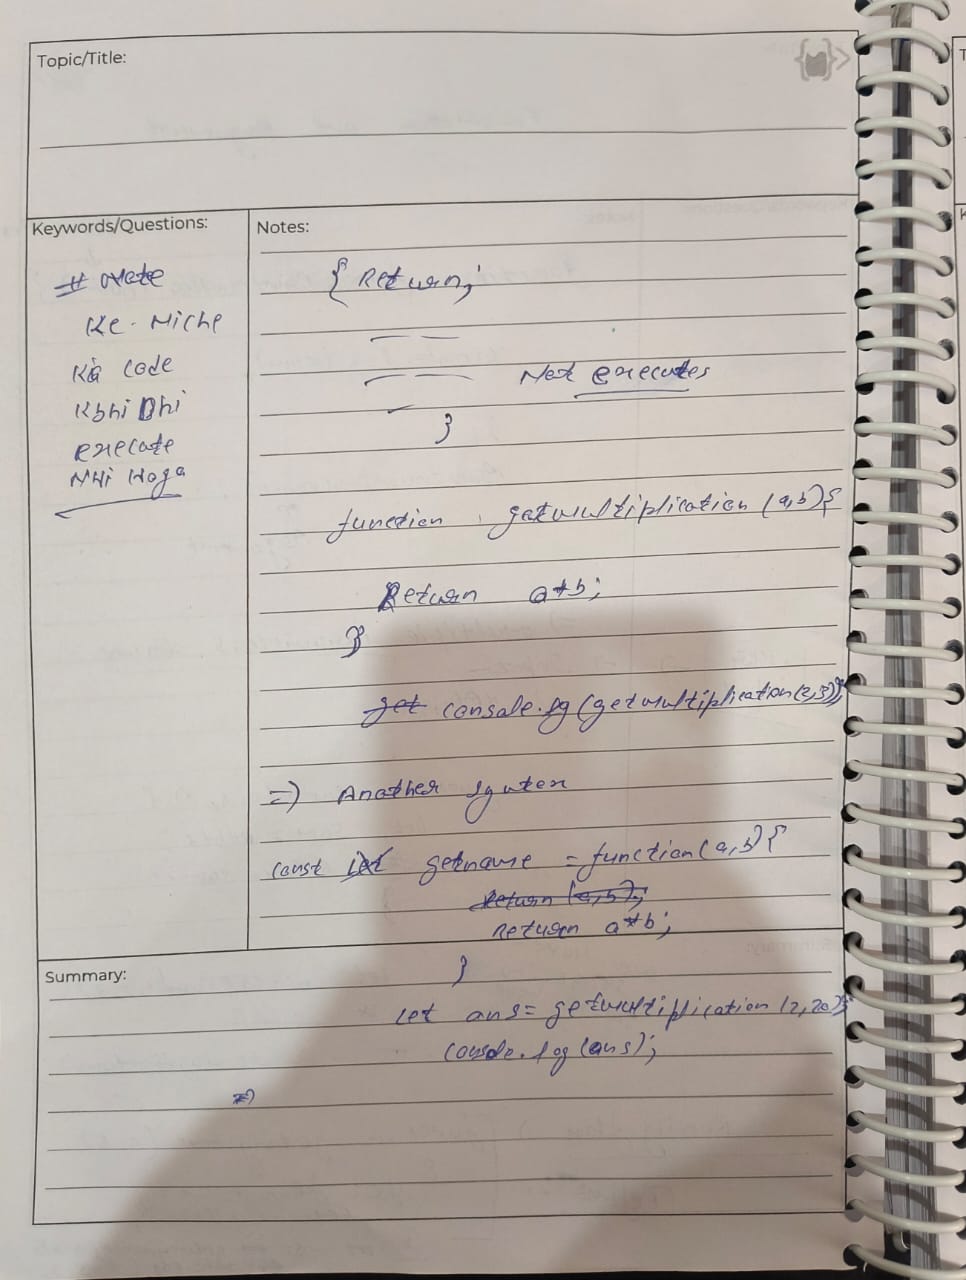 Topic/Title:
Keywords/Questions:
# Note
Ke Niche
Kia code
Kbhi Bhi
execute
Nhi Hoga
Notes:
{ Return;
Not executes
}
function getmultiplication (a,b) {
Return a*b;
}
get console.log (getmultiplication(2,3));
=) Another syntex
const let getname = function (a,b) {
Return (a,b);
Return a*b;
}
Summary:
let ans = getmultiplication (2,20);
console.log (ans);
=)